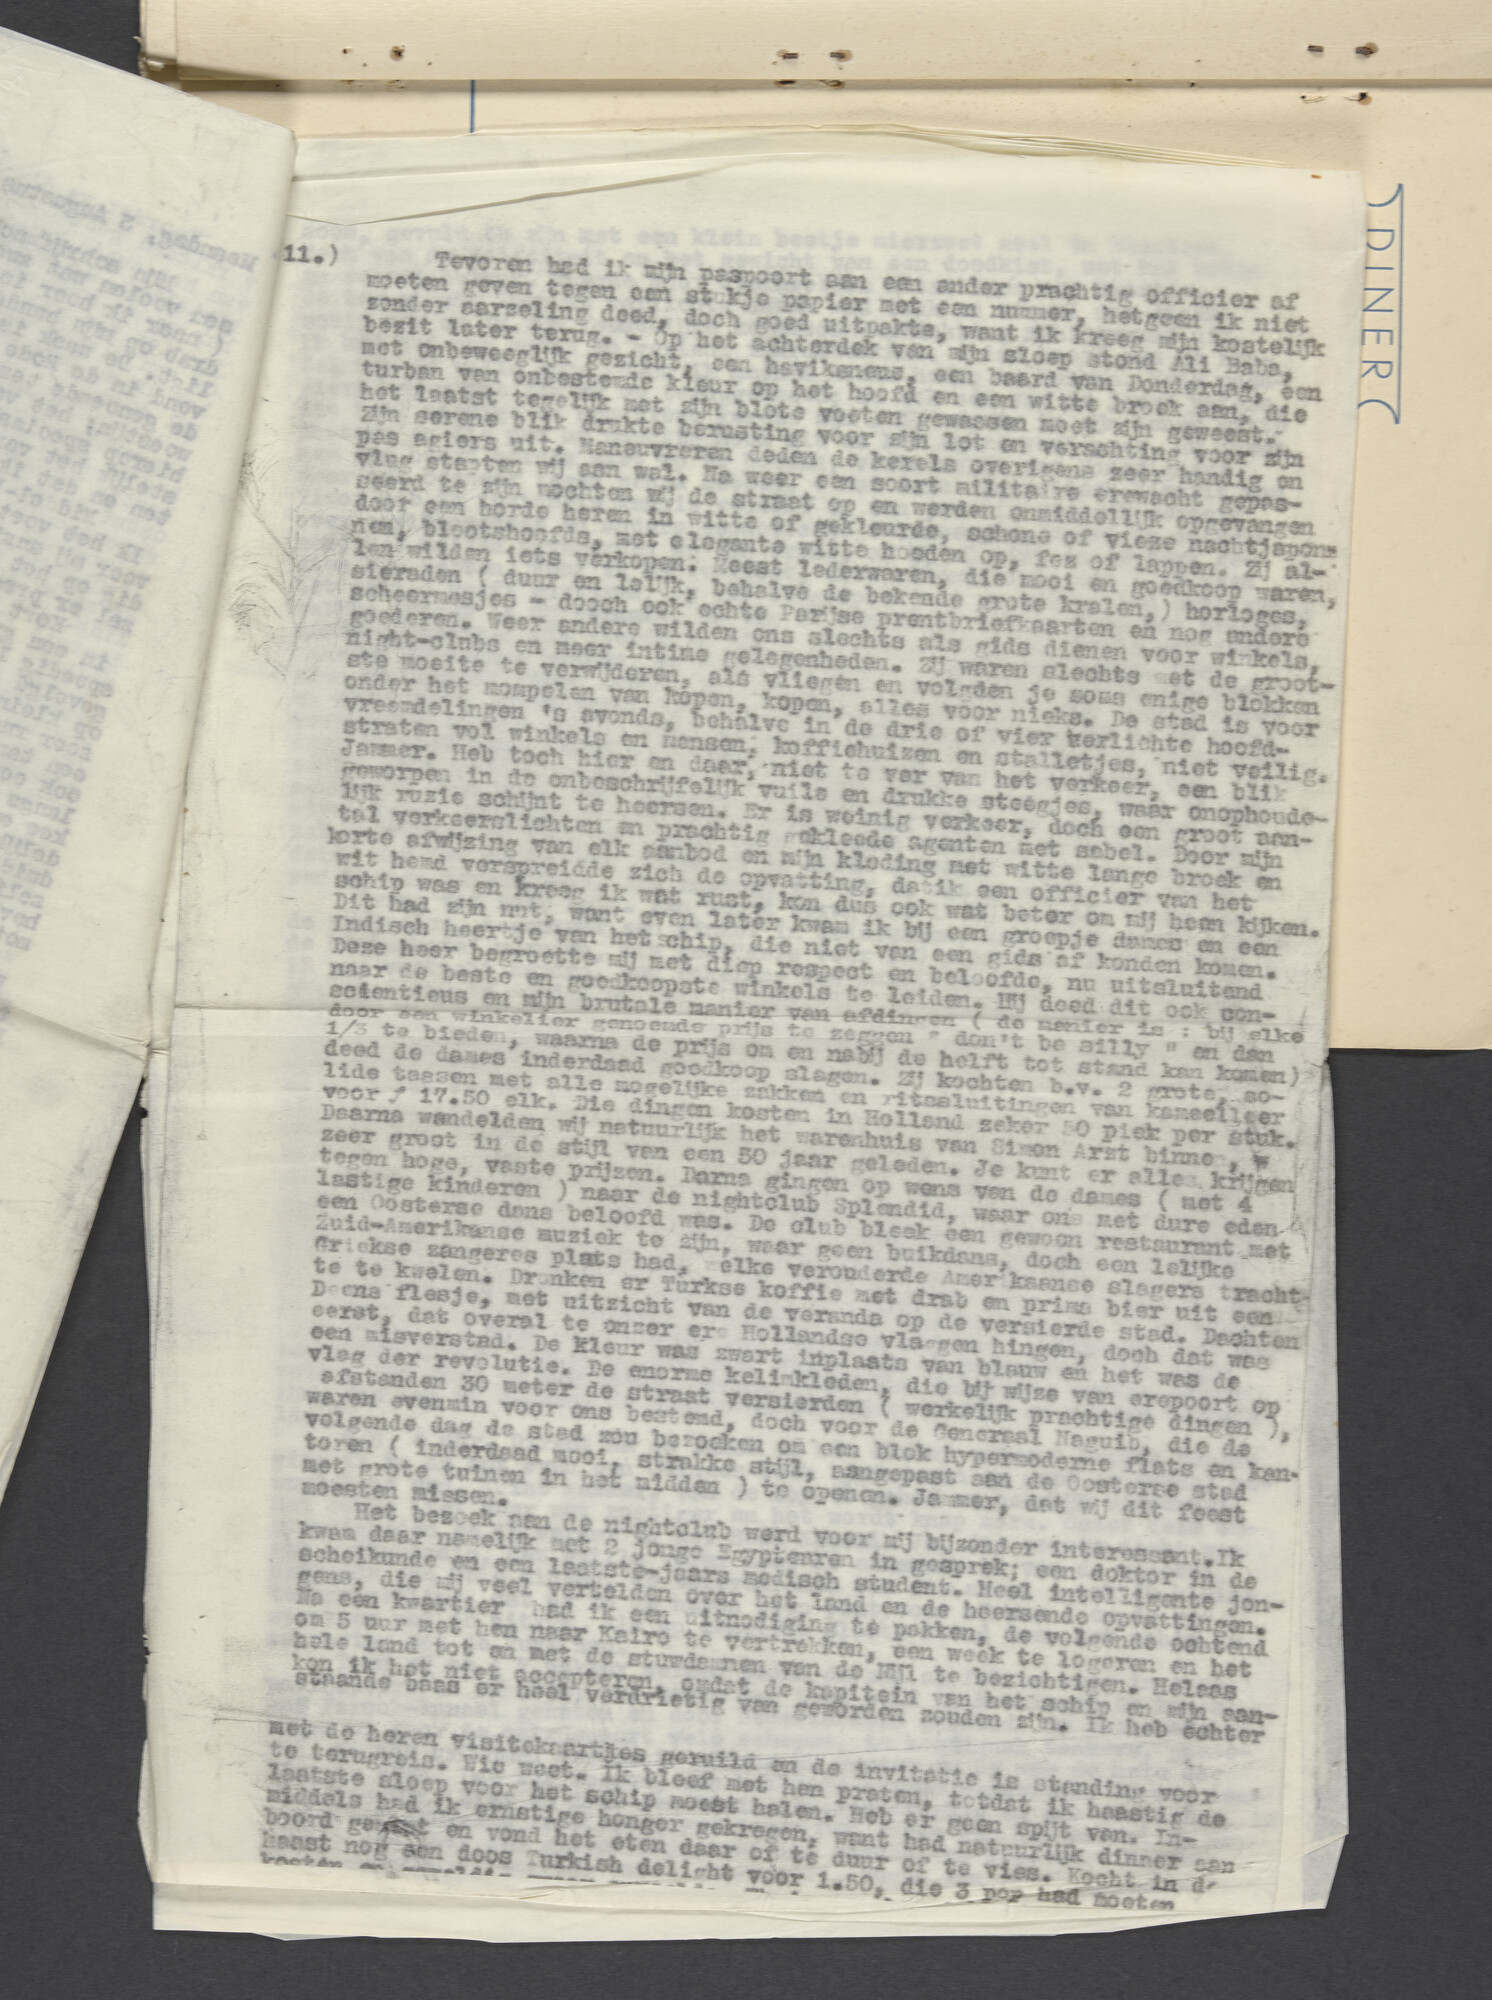 11.) Tevoren had ik mijn paspoort aan een ander prachtig officier af
moeten geven tegen een stukje papier met een nummer, hetgeen ik niet
zonder aarzeling deed, doch goed uitpakte, want ik kreeg mijn kostelijk
bezit later terug. - Op het achterdek van mijn sloep stond Ali Baba,
met onbeweeglijk gezicht, een haviksneus, een baard van Donderdag, een
turban van onbestemde kleur op het hoofd en een witte broek aan, die
het laatst tegelijk met zijn blote voeten gewassen moet zijn geweest.
Zijn serene blik drukte berusting voor zijn lot en verachting voor zijn
pas agiers uit. Maneuvreren deden de kerels overigens zeer handig en
vlug stapten wij aan wal. Na weer een soort militaire erewacht gepas-
seerd te zijn mochten wij de straat op en werden onmiddellijk opgevangen
door een horde heren in witte of gekleurde, schone of vieze nachtjapon-
nen, blootshoofds, met elegante witte hoeden op, fez of lappen. Zij al-
len wilden iets verkopen. Meest lederwaren, die mooi en goedkoop waren,
sieraden ( duur en lelijk, behalve de bekende grote kralen,) horloges,
scheermesjes - dooch ook echte Parijse prentbriefkaarten en nog andere
goederen. Weer andere wilden ons slechts als gids dienen voor winkels,
night-clubs en meer intime gelegenheden. Zij waren slechts met de groot-
ste moeite te verwijderen, als vliegen en volgden je soms enige blokken
onder het mompelen van kopen, kopen, alles voor nieks. De stad is voor
vreemdelingen 's avonds, behalve in de drie of vier verlichte hoofd-
straten vol winkels en mensen, koffiehuizen en stalletjes, niet veilig.
Jammer. Heb toch hier en daar, niet te ver van het verkeer, een blik
geworpen in de onbeschrijfelijk vuile en drukke steegjes, waar onophoude-
lijk ruzie schijnt te heersen. Er is weinig verkeer, doch een groot aan-
tal verkeerslichten en prachtig gekleede agenten met sabel. Door mijn
korte afwijzing van elk aanbod en mijn kleding met witte lange broek en
wit hemd verspreidde zich de opvatting, datik een officier van het
schip was en kreeg ik wat rust, kon dus ook wat beter om mij heen kijken.
Dit had zijn nut, want even later kwam ik bij een groepje dames en een
Indisch heertje van het schip, die niet van een gids af konden komen.
Deze heer begroette mij met diep respect en beloofde, nu uitsluitend
naar de beste en goedkoopste winkels te leiden. Hij deed dit ook con-
scientieus en mijn brutale manier van afdingen ( de manier is : bij elke
door een winkelier genoemde prijs te zeggen " don't be silly " en dan
1/3 te bieden, waarna de prijs om en nabij de helft tot stand kan komen)
deed de dames inderdaad goedkoop slagen. Zij kochten b.v. 2 grote, so-
lide tassen met alle mogelijke zakken en ritssluitingen van kameelleer
voor f 17.50 elk. Die dingen kosten in Holland zeker 50 piek per stuk.
Daarna wandelden wij natuurlijk het warenhuis van Simon Arzt binnen,
zeer groot in de stijl van een 50 jaar geleden. Je kunt er alles krijgen
tegen hoge, vaste prijzen. Darna gingen op wens van de dames ( met 4
lastige kinderen ) naar de nightclub Splendid, waar ons met dure eden
een Oosterse dans beloofd was. De club bleek een gewoon restaurant met
Zuid-Amerikanse muziek te zijn, waar geen buikdans, doch een lelijke
Griekse zangeres plats had, welke verouderde Amerikaanse slagers tracht-
te te kwelen. Dronken er Turkse koffie met drab en prima bier uit een
Deens flesje, met uitzicht van de veranda op de versierde stad. Dachten
eerst, dat overal te onzer ere Hollandse vlaggen hingen, doch dat was
een misverstad. De kleur was zwart inplaats van blauw en het was de
vlag der revolutie. De enorme kelimkleden, die bij wijze van erepoort op
afstanden 30 meter de straat versierden ( werkelijk prachtige dingen ),
waren evenmin voor ons bestemd, doch voor de Generaal Naguib, die de
volgende dag de stad zou bezoeken om een blok hypermoderne flats en kan-
toren ( inderdaad mooi, strakke stijl, aangepast aan de Oosterse stad
met grote tuinen in het midden ) te openen. Jammer, dat wij dit feest
moesten missen.
Het bezoek aan de nightclub werd voor mij bijzonder interessant.Ik
kwam daar namelijk met 2 jonge Egyptenren in gesprek; een doktor in de
scheikunde en een laatste-jaars medisch student. Heel intelligente jon-
gens, die mij veel vertelden over het land en de heersende opvattingen.
Na een kwartier had ik een uitnodiging te pakken, de volgende ochtend
om 5 uur met hen naar Kairo te vertrekken, een week te logeren en het
hele land tot en met de stuwdammen van de Nijl te bezichtigen. Helaas
kon ik het niet accepteren, omdat de kapitein van het schip en mijn aan-
staande baas er heel verdrietig van geworden zouden zijn. Ik heb echter
met de heren visitekaartjes geruild en de invitatie is standing voor
te terugreis. Wie weet. Ik bleef met hen praten, totdat ik haastig de
laatste sloep voor het schip moest halen. Heb er geen spijt van. In-
middels had ik ernstige honger gekregen, want had natuurlijk dinner aan
boord gemist en vond het eten daar of te duur of te vies. Kocht in de
haast nog een doos Turkish delight voor 1.50, die 3 pop had moeten
DINER